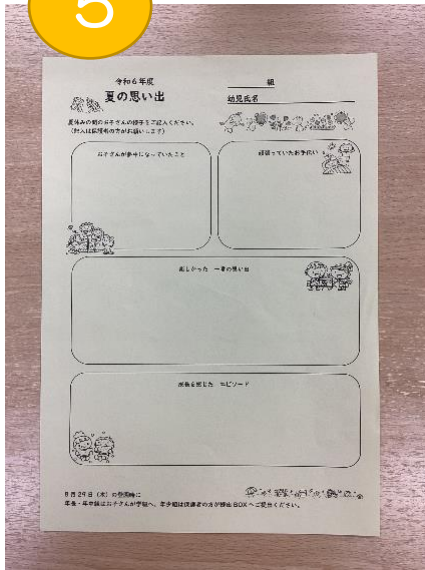 5
令和6年度
夏の思い出
組
幼児氏名
夏休みの間のお子さんの様子をご記入ください。
(記入は保護者の方がお願いします)
お子さんが夢中になっていたこと
頑張っていたお手伝い
楽しかった 一番の思い出
成長を感じた エピソード
8月29日(木)の登園時に
年長・年中組はお子さんが学級へ、年少組は保護者の方が提出BOXへご提出ください。